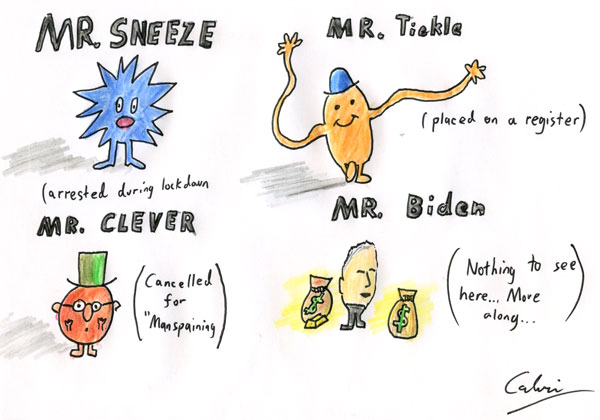 MR. SNEEZE
(arrested during lockdown
MR. Tickle
(placed on a register)
MR. CLEVER
(Cancelled
for
"Manspaining)
MR. Biden
$
$
(Nothing to see
here... More
along...)
Calvi